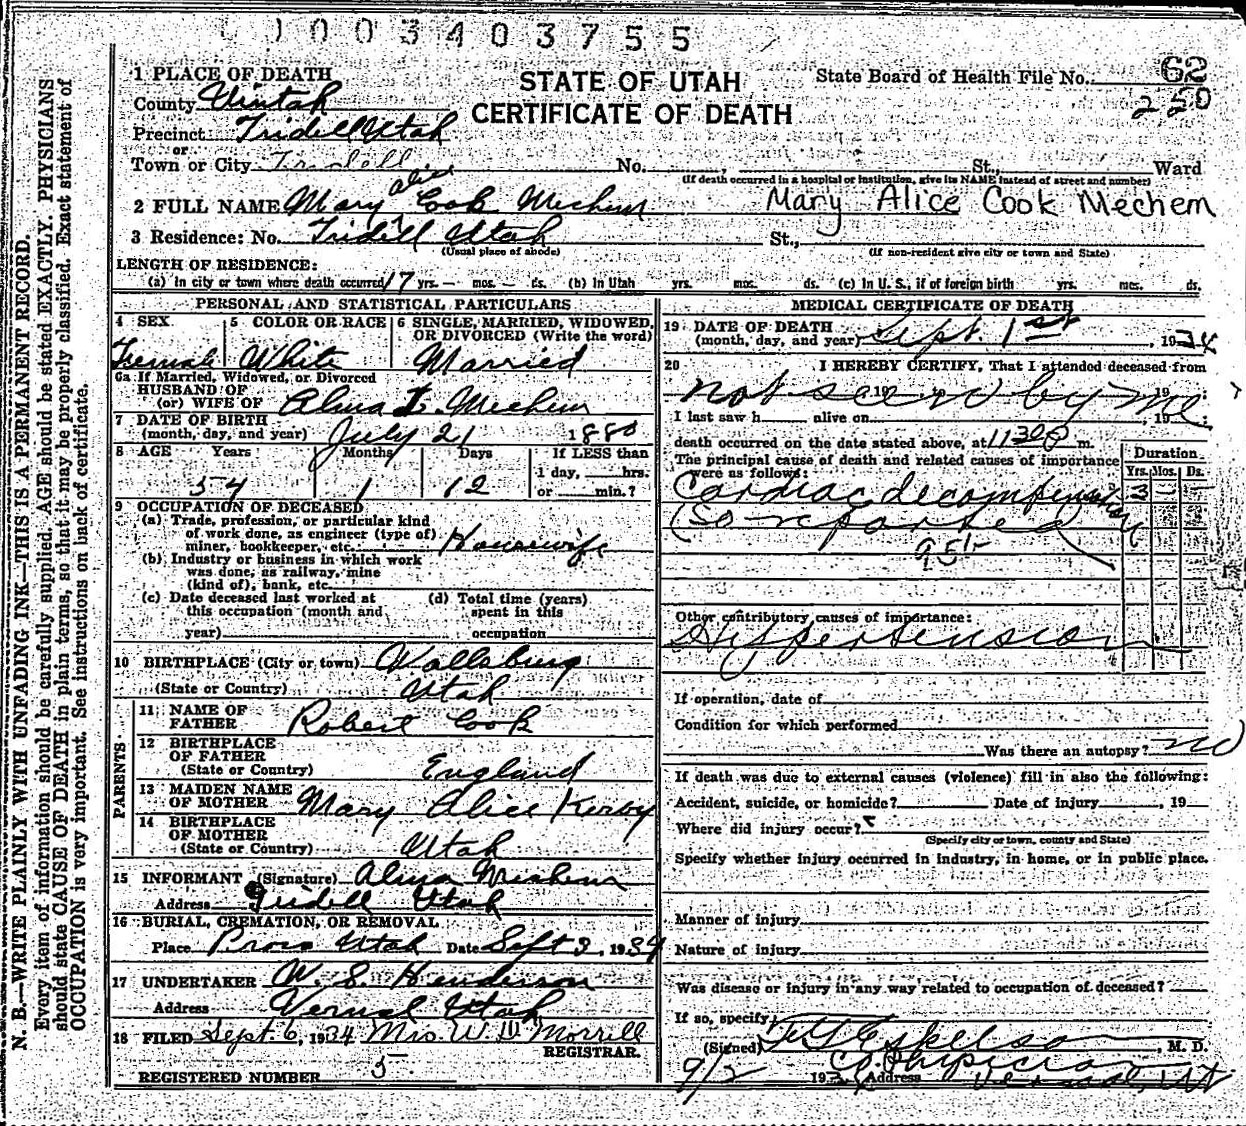 1003403755
STATE OF UTAH
CERTIFICATE OF DEATH
State Board of Health File No. 62
250
1 PLACE OF DEATH
County Uintah
Precinct Tridell Utah
or
Town or City Tridell No. St., Ward
(If death occurred in a hospital or institution, give its NAME instead of street and number)
2 FULL NAME Mary Alice Cook Mechem Mary Alice Cook Mechem
3 Residence: No. Tridell Utah St.,
(Usual place of abode) (If non-resident give city or town and State)
LENGTH OF RESIDENCE:
(a) In city or town where death occurred 17 yrs. — mos. — ds. (b) In Utah yrs. mos. ds. (c) In U. S., if of foreign birth yrs. mos. ds.
PERSONAL AND STATISTICAL PARTICULARS
4 SEX 5 COLOR OR RACE 6 SINGLE, MARRIED, WIDOWED, OR DIVORCED (Write the word)
Femal White Married
6a If Married, Widowed, or Divorced
HUSBAND OF
(or) WIFE OF Alma L. Mechem
7 DATE OF BIRTH
(month, day, and year) July 21 1880
8 AGE Years Months Days If LESS than
1 day, hrs.
54 1 12 or min.?
9 OCCUPATION OF DECEASED
(a) Trade, profession, or particular kind
of work done, as engineer (type of)
miner, bookkeeper, etc. Housewife
(b) Industry or business in which work
was done, as railway, mine
(kind of), bank, etc.
(c) Date deceased last worked at
this occupation (month and
year)
(d) Total time (years)
spent in this
occupation
10 BIRTHPLACE (City or town) Wallsburg
(State or Country) Utah
PARENTS
11 NAME OF
FATHER Robert Cook
12 BIRTHPLACE
OF FATHER
(State or Country) England
13 MAIDEN NAME
OF MOTHER Mary Alice Kerby
14 BIRTHPLACE
OF MOTHER
(State or Country) Utah
15 INFORMANT (Signature) Alma Mechem
Address Tridell Utah
16 BURIAL, CREMATION, OR REMOVAL
Place Provo Utah Date Sept 3. 1934
17 UNDERTAKER W. S. Henderson
Address Vernal Utah
18 FILED Sept. 6, 1934 Mrs. W. W. Morrill
REGISTRAR.
REGISTERED NUMBER 5
MEDICAL CERTIFICATE OF DEATH
19 DATE OF DEATH
(month, day, and year) Sept. 1st, 1934
20 I HEREBY CERTIFY, That I attended deceased from
not seen by me
19 19
I last saw h alive on , 19
death occurred on the date stated above, at 1130 m.
The principal cause of death and related causes of importance
were as follows:
Duration
Yrs. Mos. Ds.
Cardiac decompensation 3 – –
(so reported)
95
Other contributory causes of importance:
Hypertension
If operation, date of
Condition for which performed
Was there an autopsy? no
If death was due to external causes (violence) fill in also the following:
Accident, suicide, or homicide? Date of injury , 19
Where did injury occur?
(Specify city or town, county and State)
Specify whether injury occurred in industry, in home, or in public place.
Manner of injury
Nature of injury
Was disease or injury in any way related to occupation of deceased?
If so, specify
(Signed) Eskelson, M. D.
Co. Physician
9/2 1934 Address Vernal, Ut
N. B.—WRITE PLAINLY WITH UNFADING INK—THIS IS A PERMANENT RECORD.
Every item of information should be carefully supplied. AGE should be stated EXACTLY. PHYSICIANS
should state CAUSE OF DEATH in plain terms, so that it may be properly classified. Exact statement of
OCCUPATION is very important. See instructions on back of certificate.